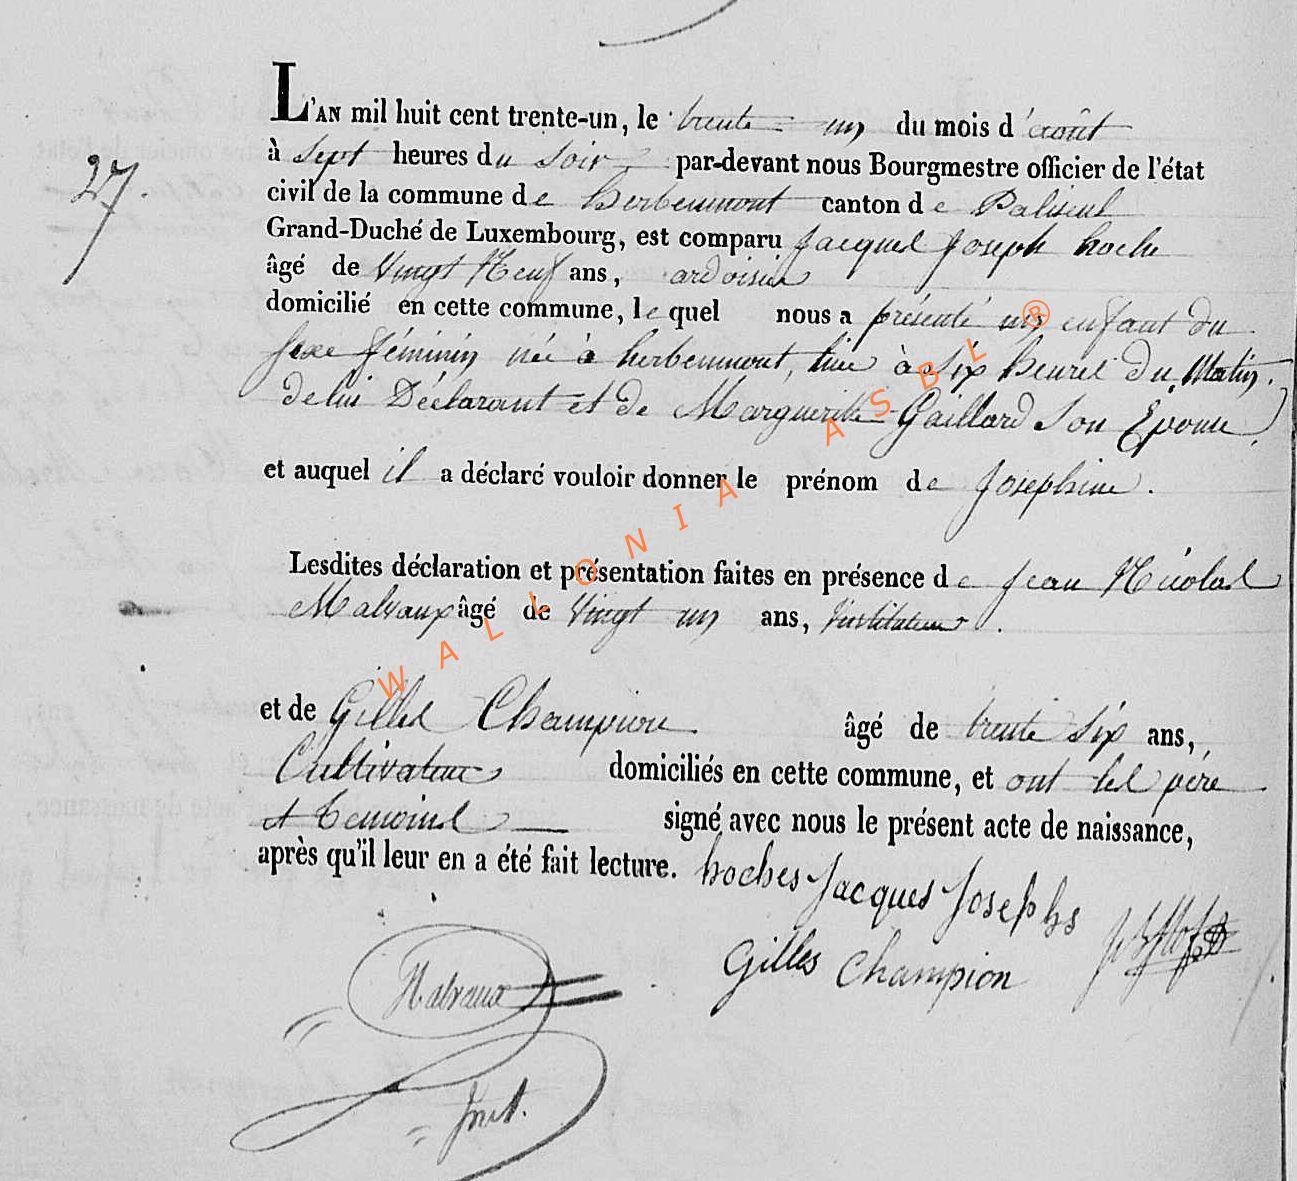 L'AN mil huit cent trente-un, le trente-un du mois d'août
27.
à sept heures du soir par-devant nous Bourgmestre officier de l'état
civil de la commune de herbeumont canton de Paliseul
Grand-Duché de Luxembourg, est comparu Jacques Joseph hoche
âgé de Vingt Neuf ans, ardoisier
domicilié en cette commune, le quel nous a présenté un enfant du
sexe féminin née à herbeumont, hier à six heures du Matin.
de lui Déclarant et de Marguerite Gaillard Son Epouse,
et auquel il a déclaré vouloir donner le prénom de Josephine.
Lesdites déclaration et présentation faites en présence de Jean Nicolas
Malvaux âgé de Vingt un ans, Instituteur.
et de Gilles Champion âgé de trente six ans,
Cultivateur domiciliés en cette commune, et ont les père
et temoins signé avec nous le présent acte de naissance,
après qu'il leur en a été fait lecture. hoches Jacques Josephs
Gilles Champion
Malvaux
Inst.
WALLONIA ASBL ®